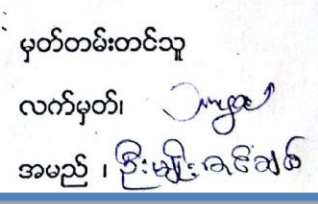 မှတ်တမ်းတင်သူ
လက်မှတ်၊
အမည် ၊ ဦးမျိုးခင်ချစ်